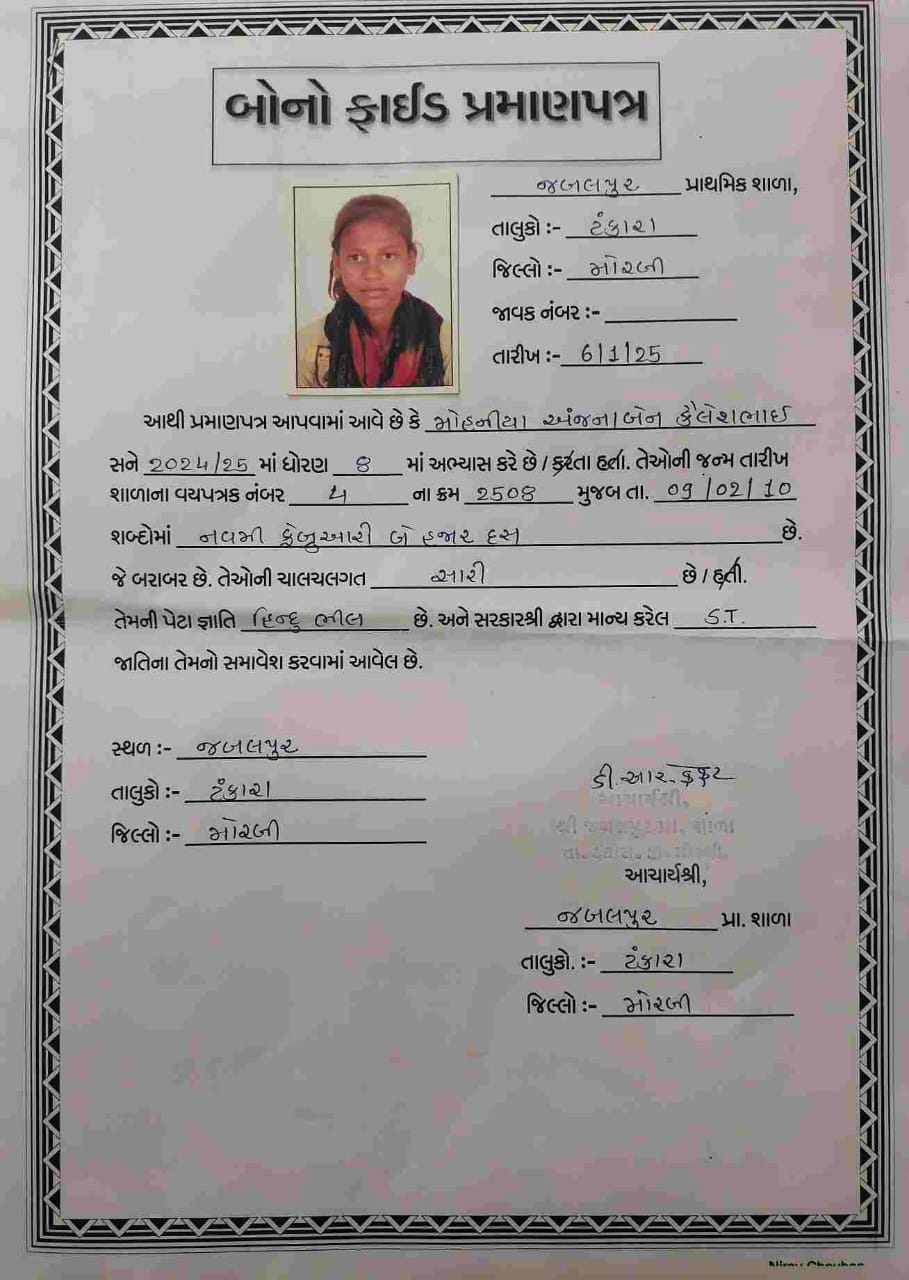 બોનો ફાઈડ પ્રમાણપત્ર
જબલપુર પ્રાથમિક શાળા,
તાલુકો :- ટંકારા
જિલ્લો :- મોરબી
જાવક નંબર :-
તારીખ :- 6/1/25
આથી પ્રમાણપત્ર આપવામાં આવે છે કે મોહનીયા અંજનાબેન કૈલેશભાઈ
સને 2024/25 માં ધોરણ 8 માં અભ્યાસ કરે છે / કરતા હતા. તેઓની જન્મ તારીખ
શાળાના વયપત્રક નંબર 4 ના ક્રમ 2508 મુજબ તા. 09/02/10
શબ્દોમાં નવમી ફેબ્રુઆરી બે હજાર દસ છે.
જે બરાબર છે. તેઓની ચાલચલગત સારી છે / હતી.
તેમની પેટા જ્ઞાતિ હિન્દુ ભીલ છે. અને સરકારશ્રી દ્વારા માન્ય કરેલ S.T.
જાતિના તેમનો સમાવેશ કરવામાં આવેલ છે.
સ્થળ :- જબલપુર
તાલુકો :- ટંકારા
જિલ્લો :- મોરબી
ડી. આર.
આચાર્યશ્રી,
શ્રી જબલપુર પ્રા. શાળા
તા. ટંકારા, જી. મોરબી.
આચાર્યશ્રી,
જબલપુર પ્રા. શાળા
તાલુકો. :- ટંકારા
જિલ્લો :- મોરબી